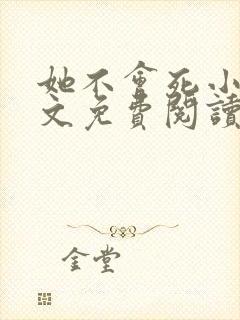 她不會死小
文免費閱讀
金堂